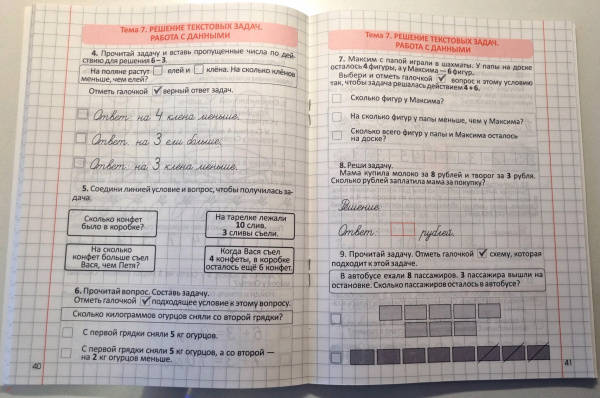 Тема 7. РЕШЕНИЕ ТЕКСТОВЫХ ЗАДАЧ.
РАБОТА С ДАННЫМИ
4. Прочитай задачу и вставь пропущенные числа по дей-
ствию для решения 6 – 3.
На поляне растут елей и клёна. На сколько клёнов
меньше, чем елей?
Отметь галочкой верный ответ задач.
Ответ: на 4 клена меньше.
Ответ: на 3 ели больше.
Ответ: на 3 клена меньше.
5. Соедини линией условие и вопрос, чтобы получилась за-
дача.
Сколько конфет
было в коробке?
На тарелке лежали
10 слив.
3 сливы съели.
На сколько
конфет больше съел
Вася, чем Петя?
Когда Вася съел
4 конфеты, в коробке
осталось ещё 6 конфет.
6. Прочитай вопрос. Составь задачу.
Отметь галочкой подходящее условие к этому вопросу.
Сколько килограммов огурцов сняли со второй грядки?
С первой грядки сняли 5 кг огурцов.
С первой грядки сняли 5 кг огурцов, а со второй —
на 2 кг огурцов меньше.
40
Тема 7. РЕШЕНИЕ ТЕКСТОВЫХ ЗАДАЧ.
РАБОТА С ДАННЫМИ
7. Максим с папой играли в шахматы. У папы на доске
осталось 4 фигуры, а у Максима — 6 фигур.
Выбери и отметь галочкой вопрос к этому условию
так, чтобы задача решалась действием 4 + 6.
Сколько фигур у Максима?
На сколько фигур у папы меньше, чем у Максима?
Сколько всего фигур у папы и Максима осталось
на доске?
8. Реши задачу.
Мама купила молоко за 8 рублей и творог за 3 рубля.
Сколько рублей заплатила мама за покупку?
Решение.
Ответ: рублей.
9. Прочитай задачу. Отметь галочкой схему, которая
подходит к этой задаче.
В автобусе ехали 8 пассажиров. 3 пассажира вышли на
остановке. Сколько пассажиров осталось в автобусе?
41